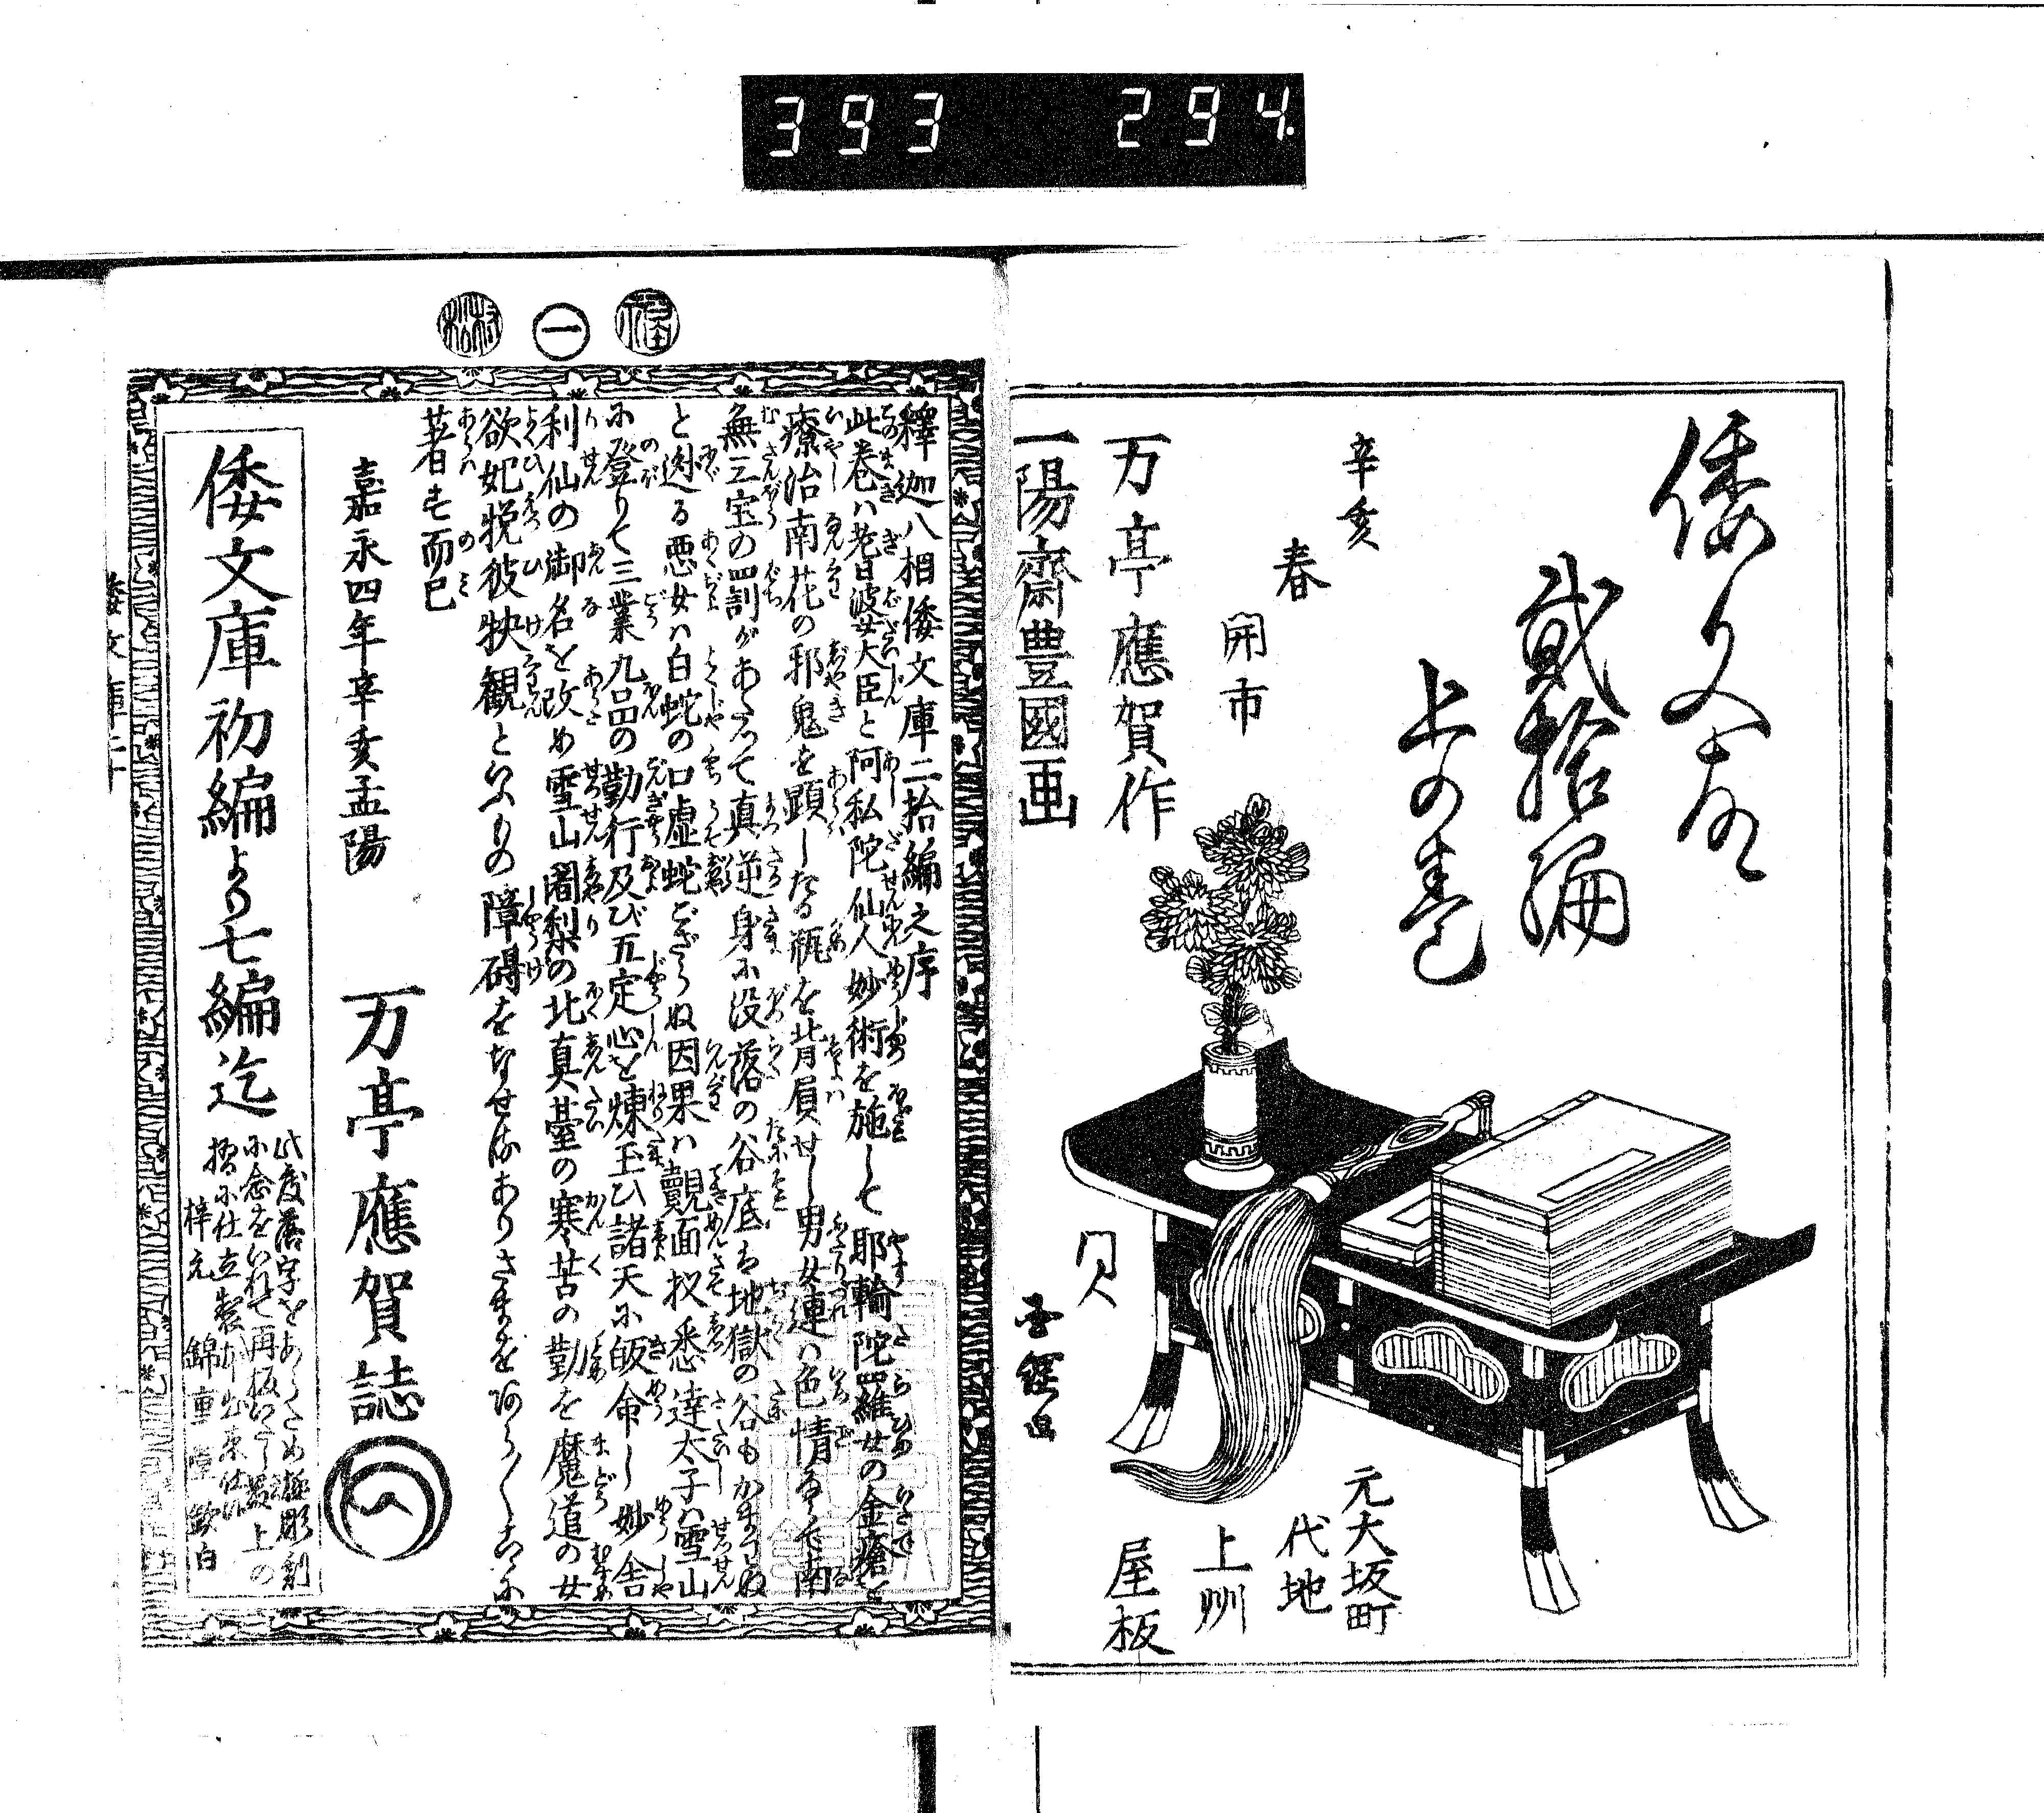 393 294
倭文庫
貳拾編
上の巻
辛亥
春
開市
万亭應賀作
一陽齋豊國画
元大坂町
代地
上州
屋板
福
一
村松
釋迦八相倭文庫二拾編之序
此巻ハ耆婆大臣と阿私陀仙人妙術を施して耶輸陀羅女の金瘡を
療治南花の邪鬼を顕したる瓶を背屓せし男女連ハ色情
無三宝の四割があたつて真逆身に没落の谷底は地獄の谷も
と迯る悪女ハ白蛇の口虚蛇ござらぬ因果ハ覿面扨悉達太子ハ雪山
に登りて三業九品の勤行及び五定心を煉玉ひ諸天に皈命し妙舎
利仙の御名を改め雪山闍梨の北真臺の寒苦の勤を魔道の女
欲妃悦彼抉観といふもの障碍をなせるありさまを
著す而已
嘉永四年辛亥孟陽
万亭應賀誌
倭文庫初編より七編迄
此度落字をあらため極彫刻
に念をいれて再板いたし最上の
摺に仕立製本出来仕候
梓元 錦重堂敬白
倭文庫二十